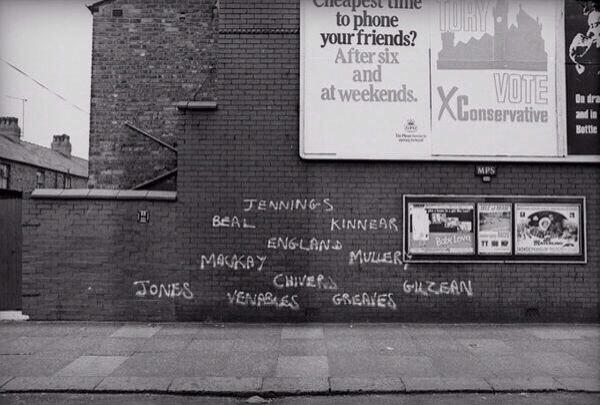 Cheapest time
to phone
your friends?
After six
and
at weekends.
TORY
VOTE
X Conservative
On dra
and in
Bottle
MPS
Baby Love
JENNINGS
BEAL KINNEAR
ENGLAND
MACKAY MULLERY
CHIVERS
JONES VENABLES GREAVES GILZEAN